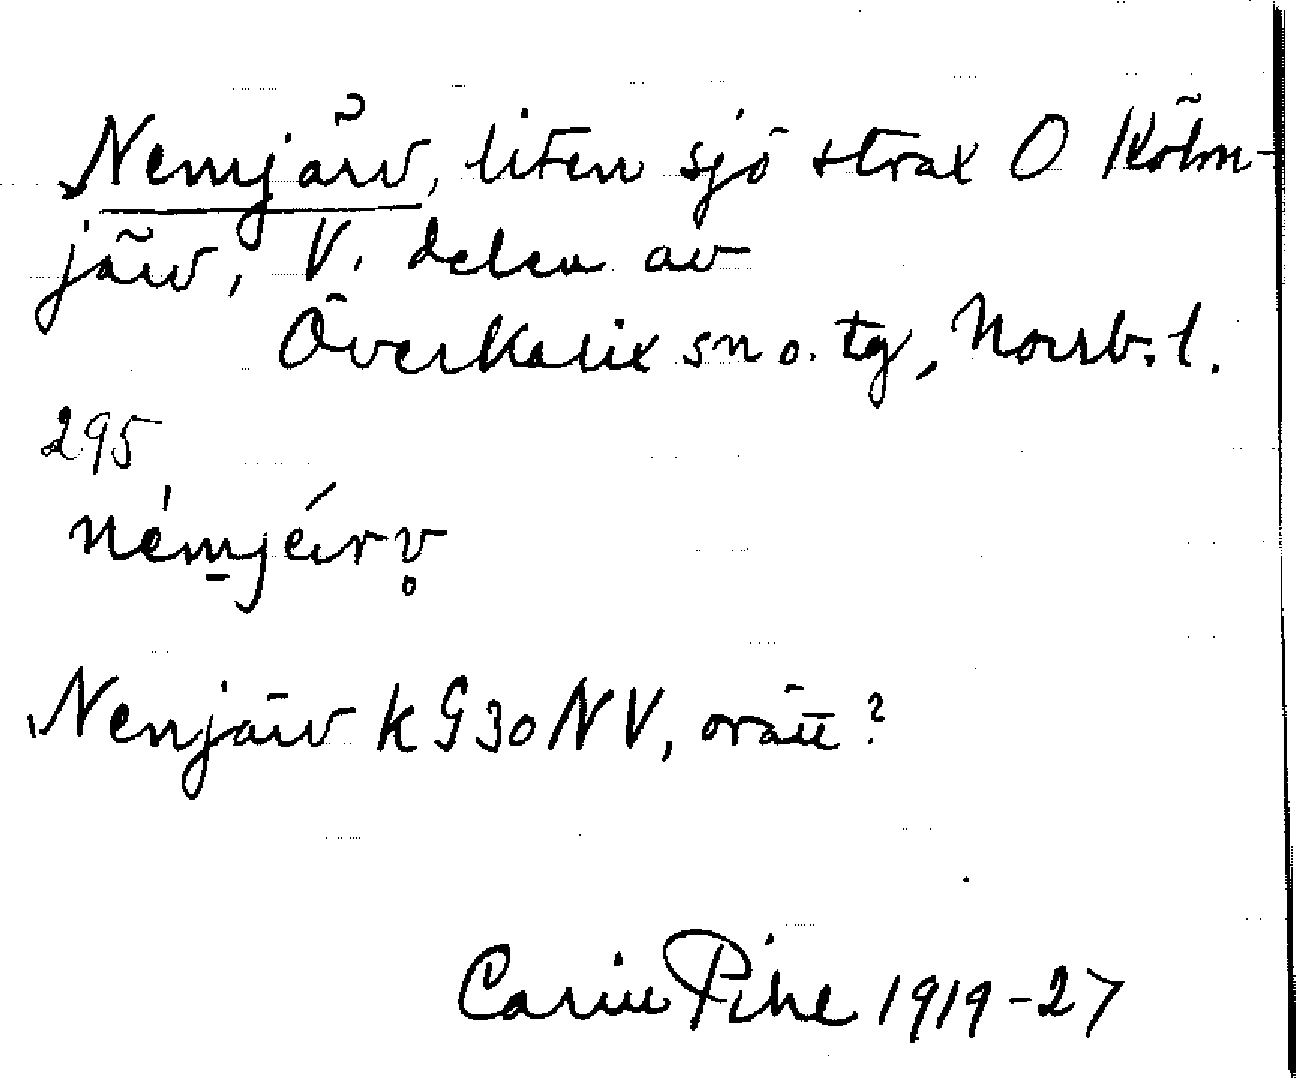 Nemjärv, liten sjö strax O Kölm-
järv, V. delen av
Överkalix sn o. tg, Norrb. l.
295
némjéirv̥
Nenjärv k G30 NV, orätt?
Carin Pihl 1919-27